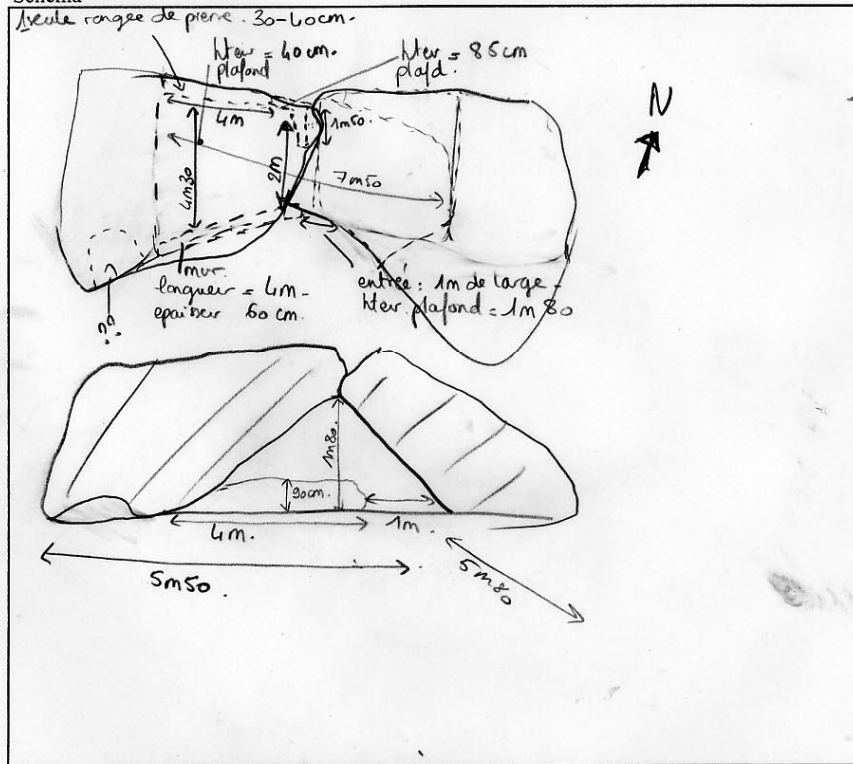 Schéma
1 seule rangée de pierre. 30-40cm.
hteur = 40cm.
plafond
hteur = 85cm
plafd.
N
4m
1m50
4m30
2m
7m50
mur.
longueur = 4m-
epaisseur 60cm.
entrée : 1m de large -
hteur plafond = 1m80
??
1m80.
90cm.
4m.
1m.
5m50.
5m80